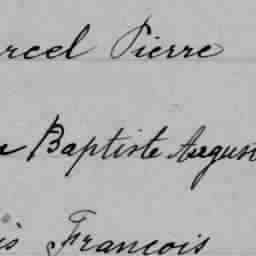 rcel Pierre
Baptiste August
is François